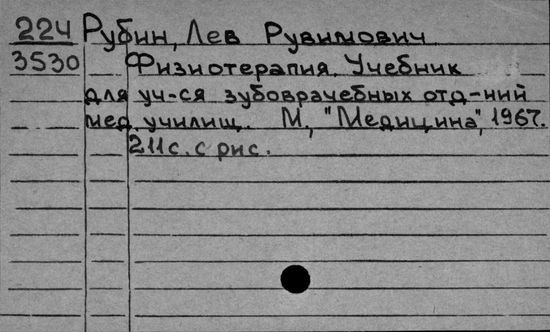 224 Рубин, Лев Рувимович.
3530 Физиотерапия. Учебник
для уч-ся зубоврачебных отд-ний
мед. училищ. М., "Медицина", 1967.
211 с. с рис.